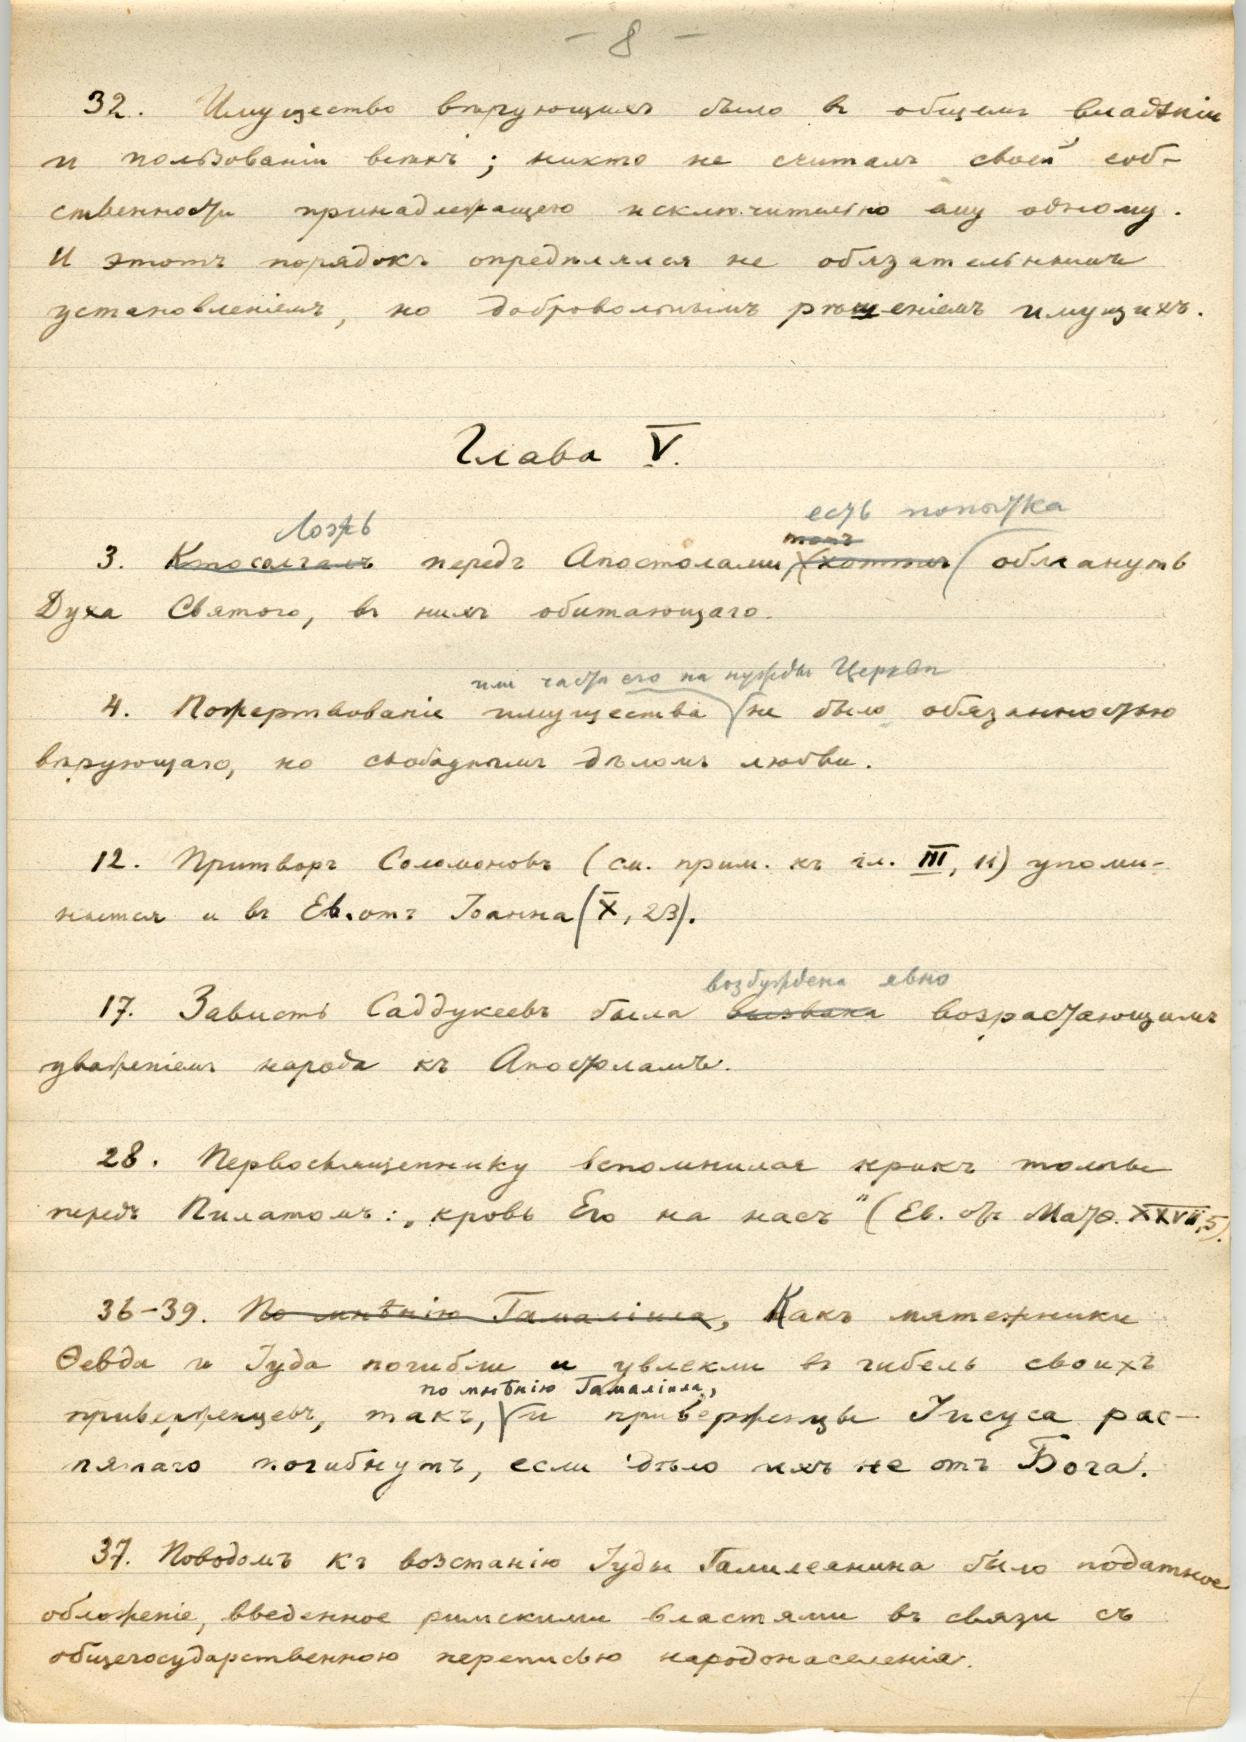 - 8 -
32. Имущество вѣрующихъ было въ общемъ владѣніи
и пользованіи всѣхъ; никто не считалъ своей соб-
ственности принадлежащею исключительно ему одному.
И этотъ порядокъ опредѣлялся не обязательнымъ
установленіемъ, но добровольнымъ рѣшеніемъ имущихъ.
Глава V.
Ложь есть попытка
тотъ
3. Кто солгалъ передъ Апостолами, хотѣлъ обмануть
Духа Святого, въ нихъ обитающаго.
или части его на нужды Церкви
4. Пожертвованіе имущества не было обязанностью
вѣрующаго, но свободнымъ дѣломъ любви.
12. Притворъ Соломоновъ (см. прим. къ гл. III, 11) упоми-
нается и въ Ев. отъ Іоанна (X, 23).
возбуждена явно
17. Зависть Саддукеевъ была вызвана возрастающимъ
уваженіемъ народа къ Апостоламъ.
28. Первосвященнику вспомнился крикъ толпы
передъ Пилатомъ: „кровь Его на насъ" (Ев. отъ Матѳ. XXVII, 5).
36-39. По мнѣнію Гамаліила, Какъ мятежники
Ѳевда и Іуда погибли и увлекли въ гибель своихъ
по мнѣнію Гамаліила,
приверженцевъ, такъ, и приверженцы Іисуса рас-
пятаго погибнутъ, если дѣло ихъ не отъ Бога.
37. Поводомъ къ возстанію Іуды Галилеянина было податное
обложеніе, введенное римскими властями въ связи съ
общегосударственною переписью народонаселенія.